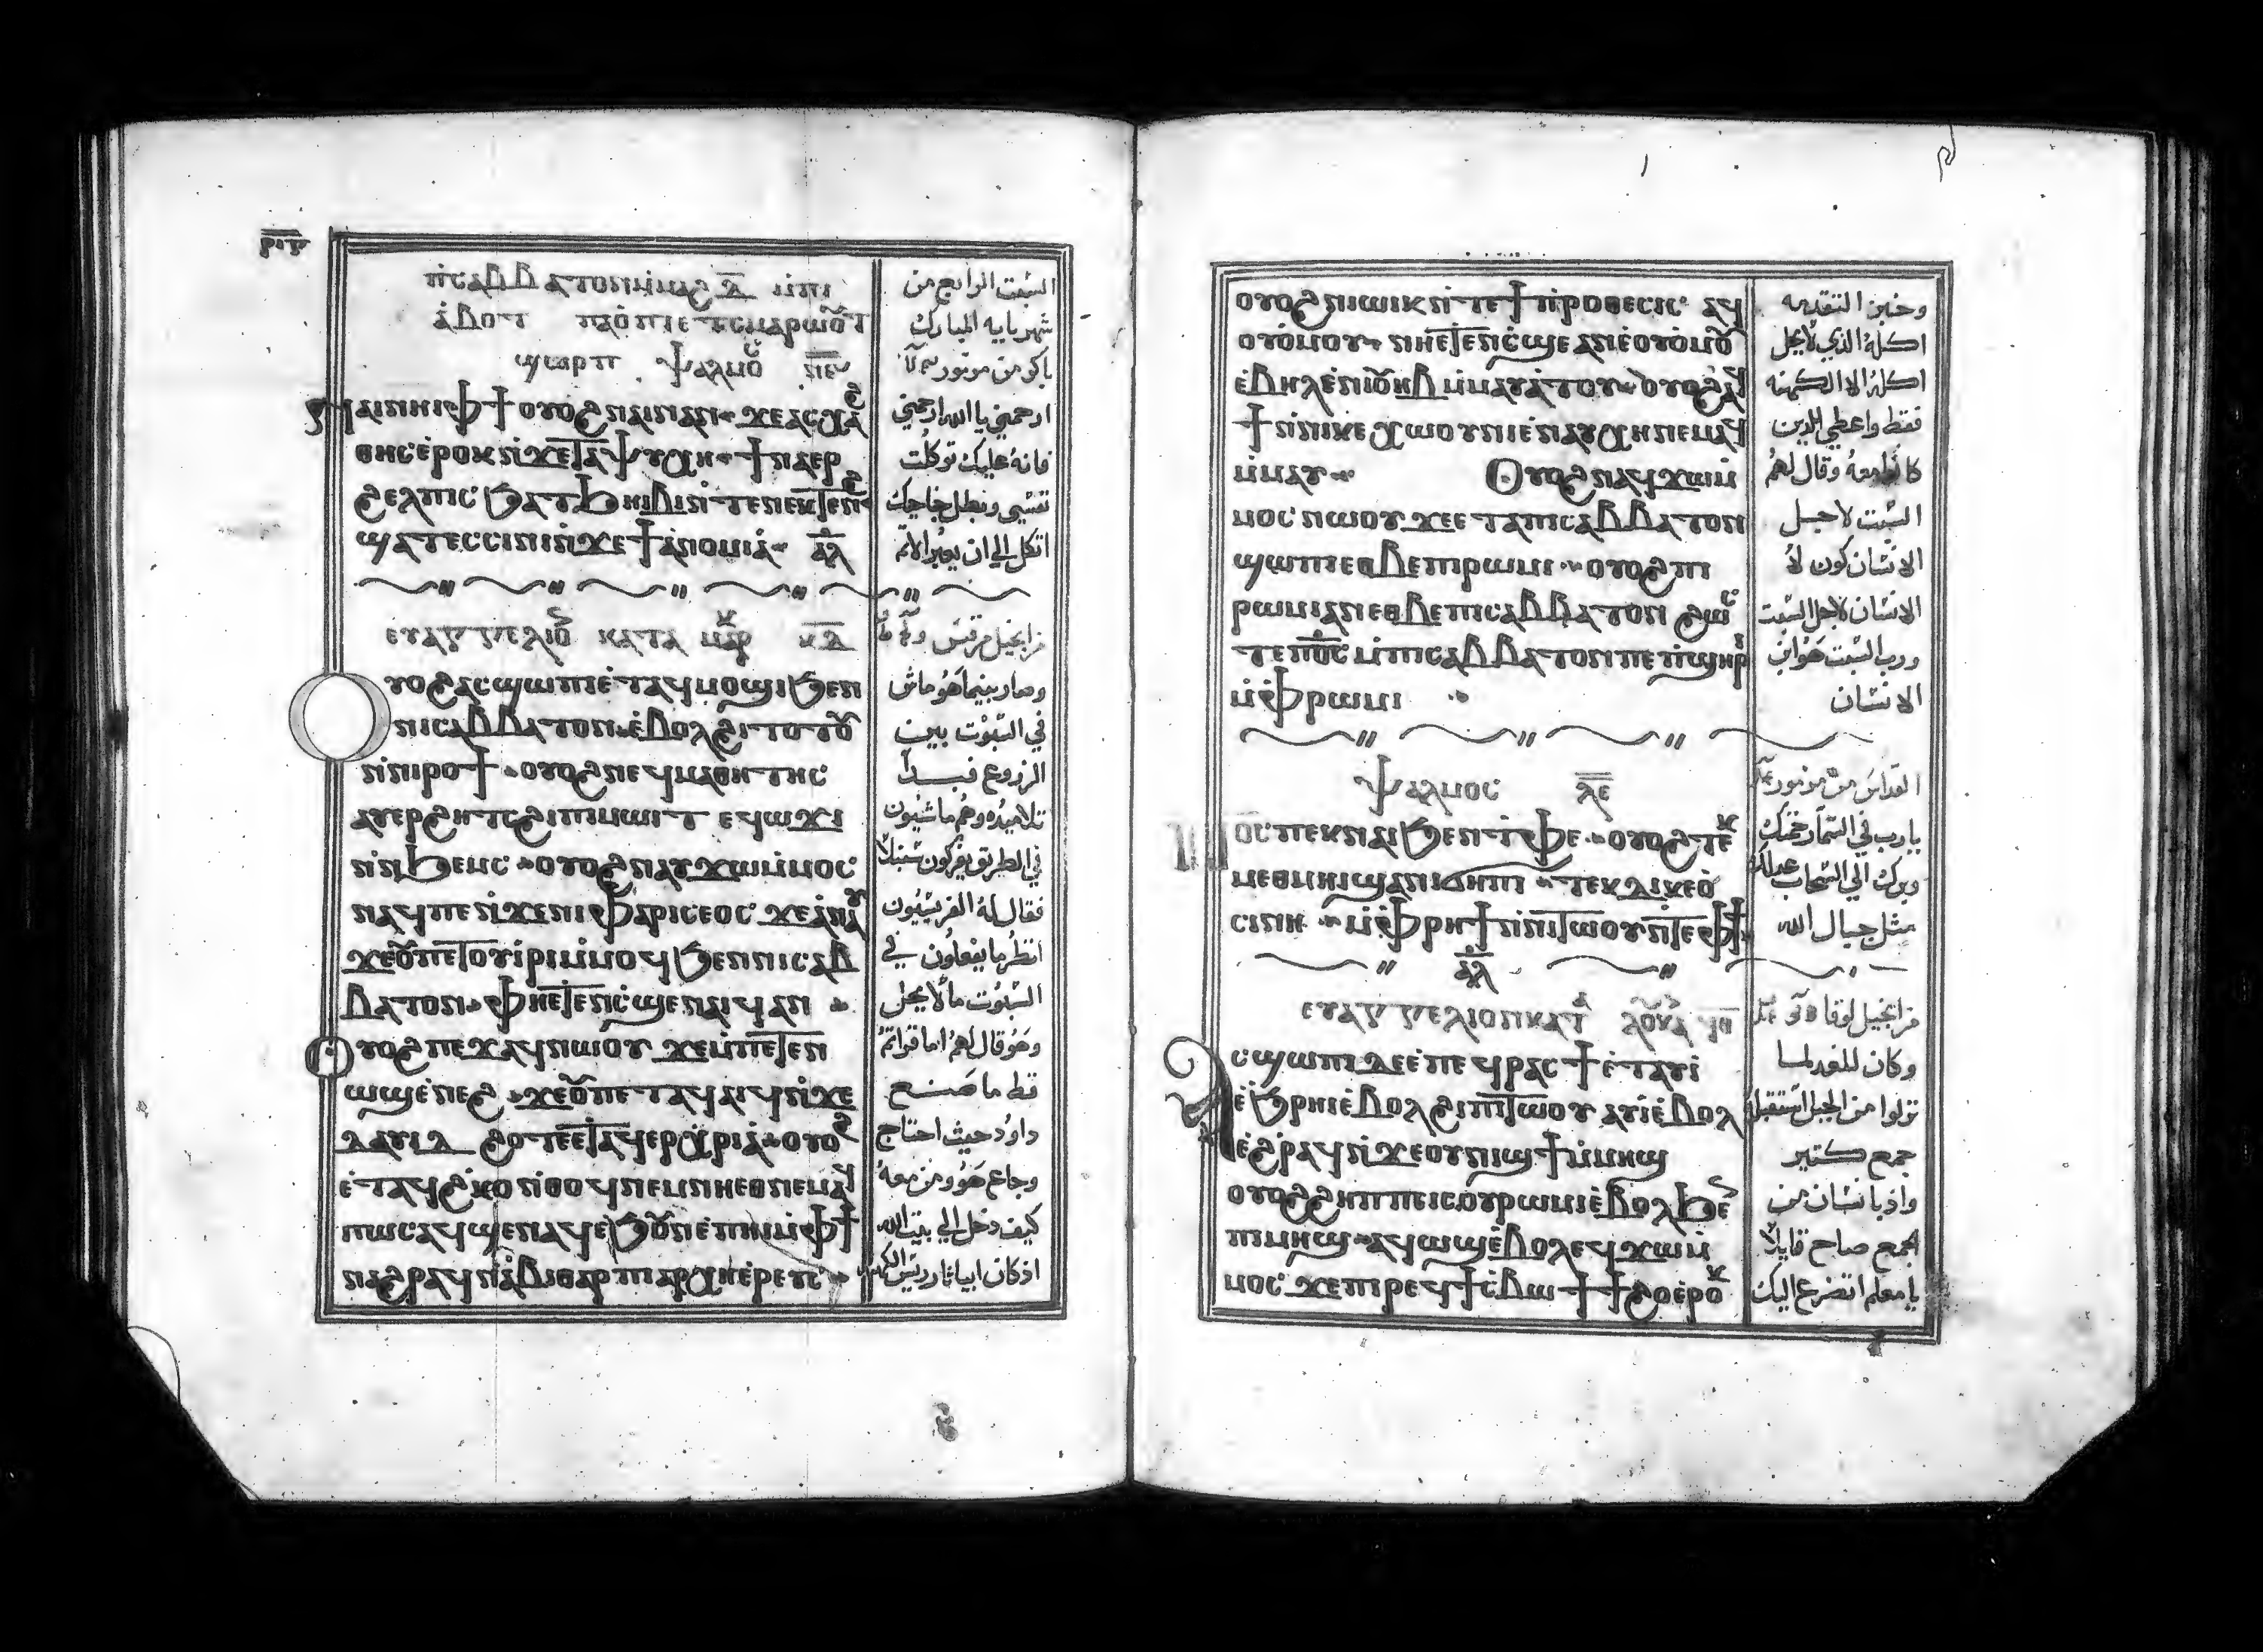 ⲣⲓⲅ
ⲡⲥⲁⲃⲃⲁⲧⲟⲛ ⲙ̀ⲙⲁϩ ⲇ̅ ⲙ̀ⲡⲓ
ⲁ̀ⲃⲟⲧ ⲡⲁⲟ̀ⲡⲓ ⲉⲧⲥⲙⲁⲣⲱⲟⲩⲧ
ϣⲱⲣⲡ ⲯⲁⲗⲙⲟ ⲛ̅ⲋ̅
ⲛⲁⲓ ⲛⲏⲓ ⲫϯ ⲟⲩⲟϩ ⲛⲁⲓ ⲛⲁⲛ ϫⲉ ⲁⲥⲭⲁ
ⲑⲏⲥ ⲉ̀ⲣⲟⲕ ⲛ̀ϫⲉ ⲧⲁ ⲯⲩⲭⲏ ϯⲛⲁⲉⲣ
ϩⲉⲗⲡⲓⲥ ϧⲁ ⲧϧⲏⲓⲃⲓ ⲛ̀ⲧⲉ ⲛⲉⲕⲧⲉⲛϩ
ϣⲁⲧⲉⲥⲥⲓⲛⲓ ⲛ̀ϫⲉ ϯⲁ̀ⲛⲟⲙⲓⲁ̀ ⲁ̅ⲗ̅
ⲉⲩⲁⲅⲅⲉⲗⲓⲟ ⲕⲁⲧⲁ ⲙⲁⲣⲕ ⲕ̅ⲇ̅
ⲟⲩⲟϩ ⲁⲥϣⲱⲡⲓ ⲉ̀ⲧⲁϥⲙⲟϣⲓ ϧⲉⲛ
ⲛⲓⲥⲁⲃⲃⲁⲧⲟⲛ ⲉ̀ⲃⲟⲗ ϩⲓⲧⲟⲧⲟⲩ
ⲛ̀ⲛⲓⲣⲟϯ ⲟⲩⲟϩ ⲛⲉϥⲙⲁⲑⲏⲧⲏⲥ
ⲁⲩⲉⲣϩⲏⲧⲥ ϩⲓ ⲡⲓⲙⲱⲓⲧ ⲉⲩϥⲱϫⲓ
ⲛ̀ⲛϧⲉⲙⲥ ⲟⲩⲟϩ ⲛⲁⲩϫⲱⲙ̀ⲙⲟⲥ
ⲛⲁϥ ⲡⲉ ⲛ̀ϫⲉ ⲛⲓⲫⲁⲣⲓⲥⲉⲟⲥ ϫⲉ ⲁ̀ⲛⲁⲩ
ϫⲉ ⲟⲩ ⲡⲉⲧⲟⲩⲓ̀ⲣⲓ ⲙ̀ⲙⲟϥ ϧⲉⲛ ⲛⲓⲥⲁⲃ
ⲃⲁⲧⲟⲛ ⲫⲏⲉⲧⲉⲛⲥ̀ϣⲉ ⲛ̀ⲁⲓϥ ⲁⲛ
ⲟⲩⲟϩ ⲡⲉϫⲁϥ ⲛⲱⲟⲩ ϫⲉ ⲙ̀ⲡⲉⲧⲉⲛ
ⲱϣ ⲉ̀ⲛⲉϩ ϫⲉ ⲟⲩ ⲡⲉⲧⲁϥⲁⲓϥ ⲛ̀ϫⲉ
ⲇⲁⲩⲓⲇ ϩⲟⲧⲉ ⲉⲧⲁϥⲉⲣⲭ̀ⲣⲓⲁ̀ ⲟⲩⲟϩ
ⲉ̀ⲧⲁϥϩ̀ⲕⲟ ⲛ̀ⲑⲟϥ ⲛⲉⲙ ⲛⲏⲉⲑⲛⲉⲙⲁϥ
ⲡⲱⲥ ⲁϥϣⲉⲛⲁϥ ⲉϧⲟⲩⲛ ⲉ̀ⲡⲏⲓ ⲙ̀ⲫϯ
ⲛⲁϩⲣⲁϥ ⲛ̀ⲁ̀ⲃⲓⲁⲑⲁⲣ ⲡⲓⲁⲣⲭⲏⲉ̀ⲣⲉⲩⲥ
السبت الرابع من
شهر بابه المبارك
باكر من مزمور
ارحمني يا الله ارحمني
فانه عليك توكلت
نفسي وبظل جناحيك
اتكل الي ان يعبر الاثم
من انجيل مرقس
وصار بينما هو ماش
في السبوت بين
الزروع فبدا
تلاميذه وهم ماشيون
في الطريق يفركون سنبلا
فقال له الفريسيون
انظر ما يفعلون في
السبوت ما لا يحل
وهو قال لهم اما قراتم
قط ما صنع
داود حيث احتاج
وجاع هو ومن معه
كيف دخل الي بيت الله
اذ كان ابياثار رييس الكهنه
ⲟⲩⲟϩ ⲛⲓⲱⲓⲕ ⲛ̀ⲧⲉ ϯⲡ̀ⲣⲟⲑⲉⲥⲓⲥ ⲁϥ
ⲟⲩⲟ̀ⲙⲟⲩ ⲛⲏⲉⲧⲉⲛⲥ̀ϣⲉ ⲁⲛ ⲉ̀ⲟⲩⲟ̀ⲙⲟⲩ
ⲉ̀ⲃⲏⲗ ⲉ̀ⲛⲓⲟⲩⲏⲃ ⲙ̀ⲙⲁⲩⲁ̀ⲧⲟⲩ ⲟⲩⲟϩ ⲁϥ
ϯ ⲛ̀ⲛⲓⲕⲉⲭⲱⲟⲩⲛⲓ ⲉ̀ⲛⲁⲩⲭⲏ ⲛⲉⲙⲁϥ
ⲙ̀ⲙⲁⲩ ⲟⲩⲟϩ ⲛⲁϥϫⲱⲙ̀
ⲙⲟⲥ ⲛⲱⲟⲩ ϫⲉ ⲉⲧⲁ ⲡⲓⲥⲁⲃⲃⲁⲧⲟⲛ
ϣⲱⲡⲓ ⲉⲑⲃⲉ ⲡⲓⲣⲱⲙⲓ ⲟⲩⲟϩ ⲡⲓ
ⲣⲱⲙⲓ ⲁⲛ ⲉⲑⲃⲉ ⲡⲓⲥⲁⲃⲃⲁⲧⲟⲛ ϩⲱⲥ
ⲧⲉ ⲡⲟ̅ⲥ̅ ⲙ̀ⲡⲓⲥⲁⲃⲃⲁⲧⲟⲛ ⲡⲉ ⲡ̀ϣⲏⲣⲓ
ⲙ̀ⲫⲣⲱⲙⲓ
ⲯⲁⲗⲙⲟⲥ ⲗ̅ⲉ̅
ⲡⲟ̅ⲥ̅ ⲡⲉⲕⲛⲁⲓ ϧⲉⲛ ⲧ̀ⲫⲉ ⲟⲩⲟϩ ⲧⲉⲕ
ⲙⲉⲑⲙⲏⲓ ϣⲁ ⲛⲓϭⲏⲡⲓ ⲧⲉⲕⲇⲓⲕⲉⲟ̀
ⲥⲓⲛⲏ ⲙ̀ⲫⲣⲏϯ ⲛ̀ⲛⲓⲧⲱⲟⲩ ⲛⲧⲉ ⲫϯ
ⲁ̅ⲗ̅
ⲉⲩⲁⲅⲅⲉⲗⲓⲟⲛ ⲕⲁⲧⲁ ⲗⲟⲩⲕⲁ
ⲁⲥϣⲱⲡⲓ ⲇⲉ ⲉ̀ⲡⲉϥⲣⲁⲥϯ ⲉ̀ⲧⲁⲩⲓ̀
ⲉ̀ϧⲣⲏⲓ ⲉ̀ⲃⲟⲗ ϩⲓ ⲡⲓⲧⲱⲟⲩ ⲁⲩⲓ̀ ⲉ̀ⲃⲟⲗ
ⲉ̀ϩⲣⲁϥ ⲛ̀ϫⲉ ⲟⲩⲛⲓϣϯ ⲙ̀ⲙⲏϣ
ⲟⲩⲟϩ ϩⲏⲡⲡⲉ ⲓⲥ ⲟⲩⲣⲱⲙⲓ ⲉ̀ⲃⲟⲗ ϧⲉⲛ
ⲡⲓⲙⲏϣ ⲁϥⲱϣ ⲉ̀ⲃⲟⲗ ⲉϥϫⲱⲙ̀
ⲙⲟⲥ ϫⲉ ⲡⲓⲣⲉϥϯⲥ̀ⲃⲱ ϯϯϩⲟ ⲉ̀ⲣⲟⲕ
وخبز التقدمه
اكله الذي لا يحل
اكله الا الكهنه
فقط واعطي الذين
كانوا معه وقال لهم
السبت لاجل
الانسان كون لا
الانسان لاجل السبت
ورب السبت هو ابن
الانسان
القداس من مزمور
يا رب في السما رحمتك
وبرك الي السحاب عدلك
مثل جبال الله
من انجيل لوقا
وكان للغد لما
نزلوا من الجبل استقبله
جمع كتير
واذ بانسان من
الجمع صاح قايلا
يا معلم اتضرع اليك